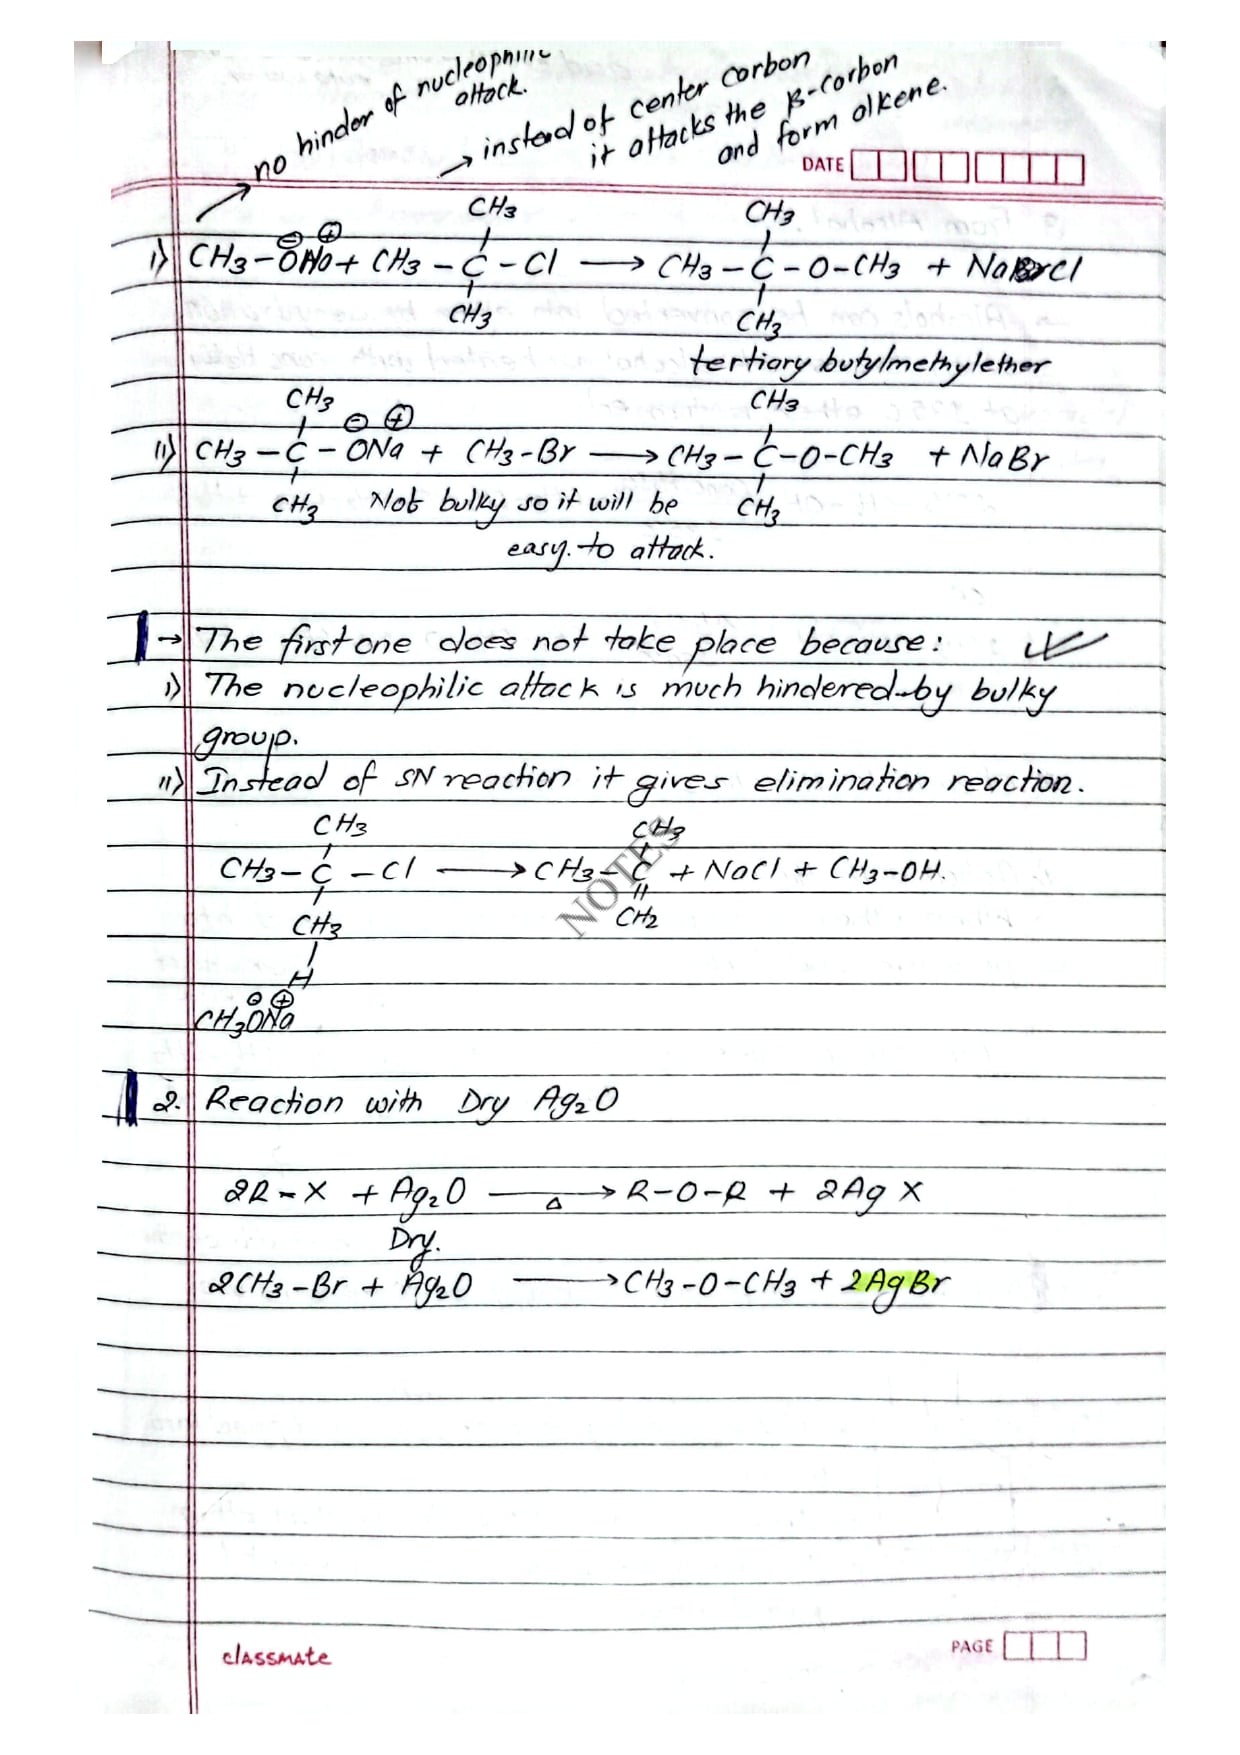 no hinder of nucleophilic
attack.
→ instead of center carbon
it attacks the β-carbon
and form alkene.
DATE
CH3 CH3
i) CH3-O⊖Na⊕ + CH3 - C - Cl ⟶ CH3 - C - O-CH3 + NaCl
CH3 CH3
tertiary butylmethylether
CH3 CH3
ii) CH3 - C - O⊖Na⊕ + CH3-Br ⟶ CH3 - C-O-CH3 + NaBr
CH3 Not bulky so it will be CH3
easy. to attack.
→ The first one does not take place because:
i) The nucleophilic attack is much hindered by bulky
group.
ii) Instead of SN reaction it gives elimination reaction.
CH3 CH3
CH3 - C - Cl ⟶ CH3 - C + NaCl + CH3-OH.
CH3 CH2
H
CH3O⊖Na⊕
NOTES
2. Reaction with Dry Ag2O
2R-X + Ag2O ⟶ R-O-R + 2AgX
Δ
Dry.
2CH3-Br + Ag2O ⟶ CH3-O-CH3 + 2AgBr
classmate
PAGE